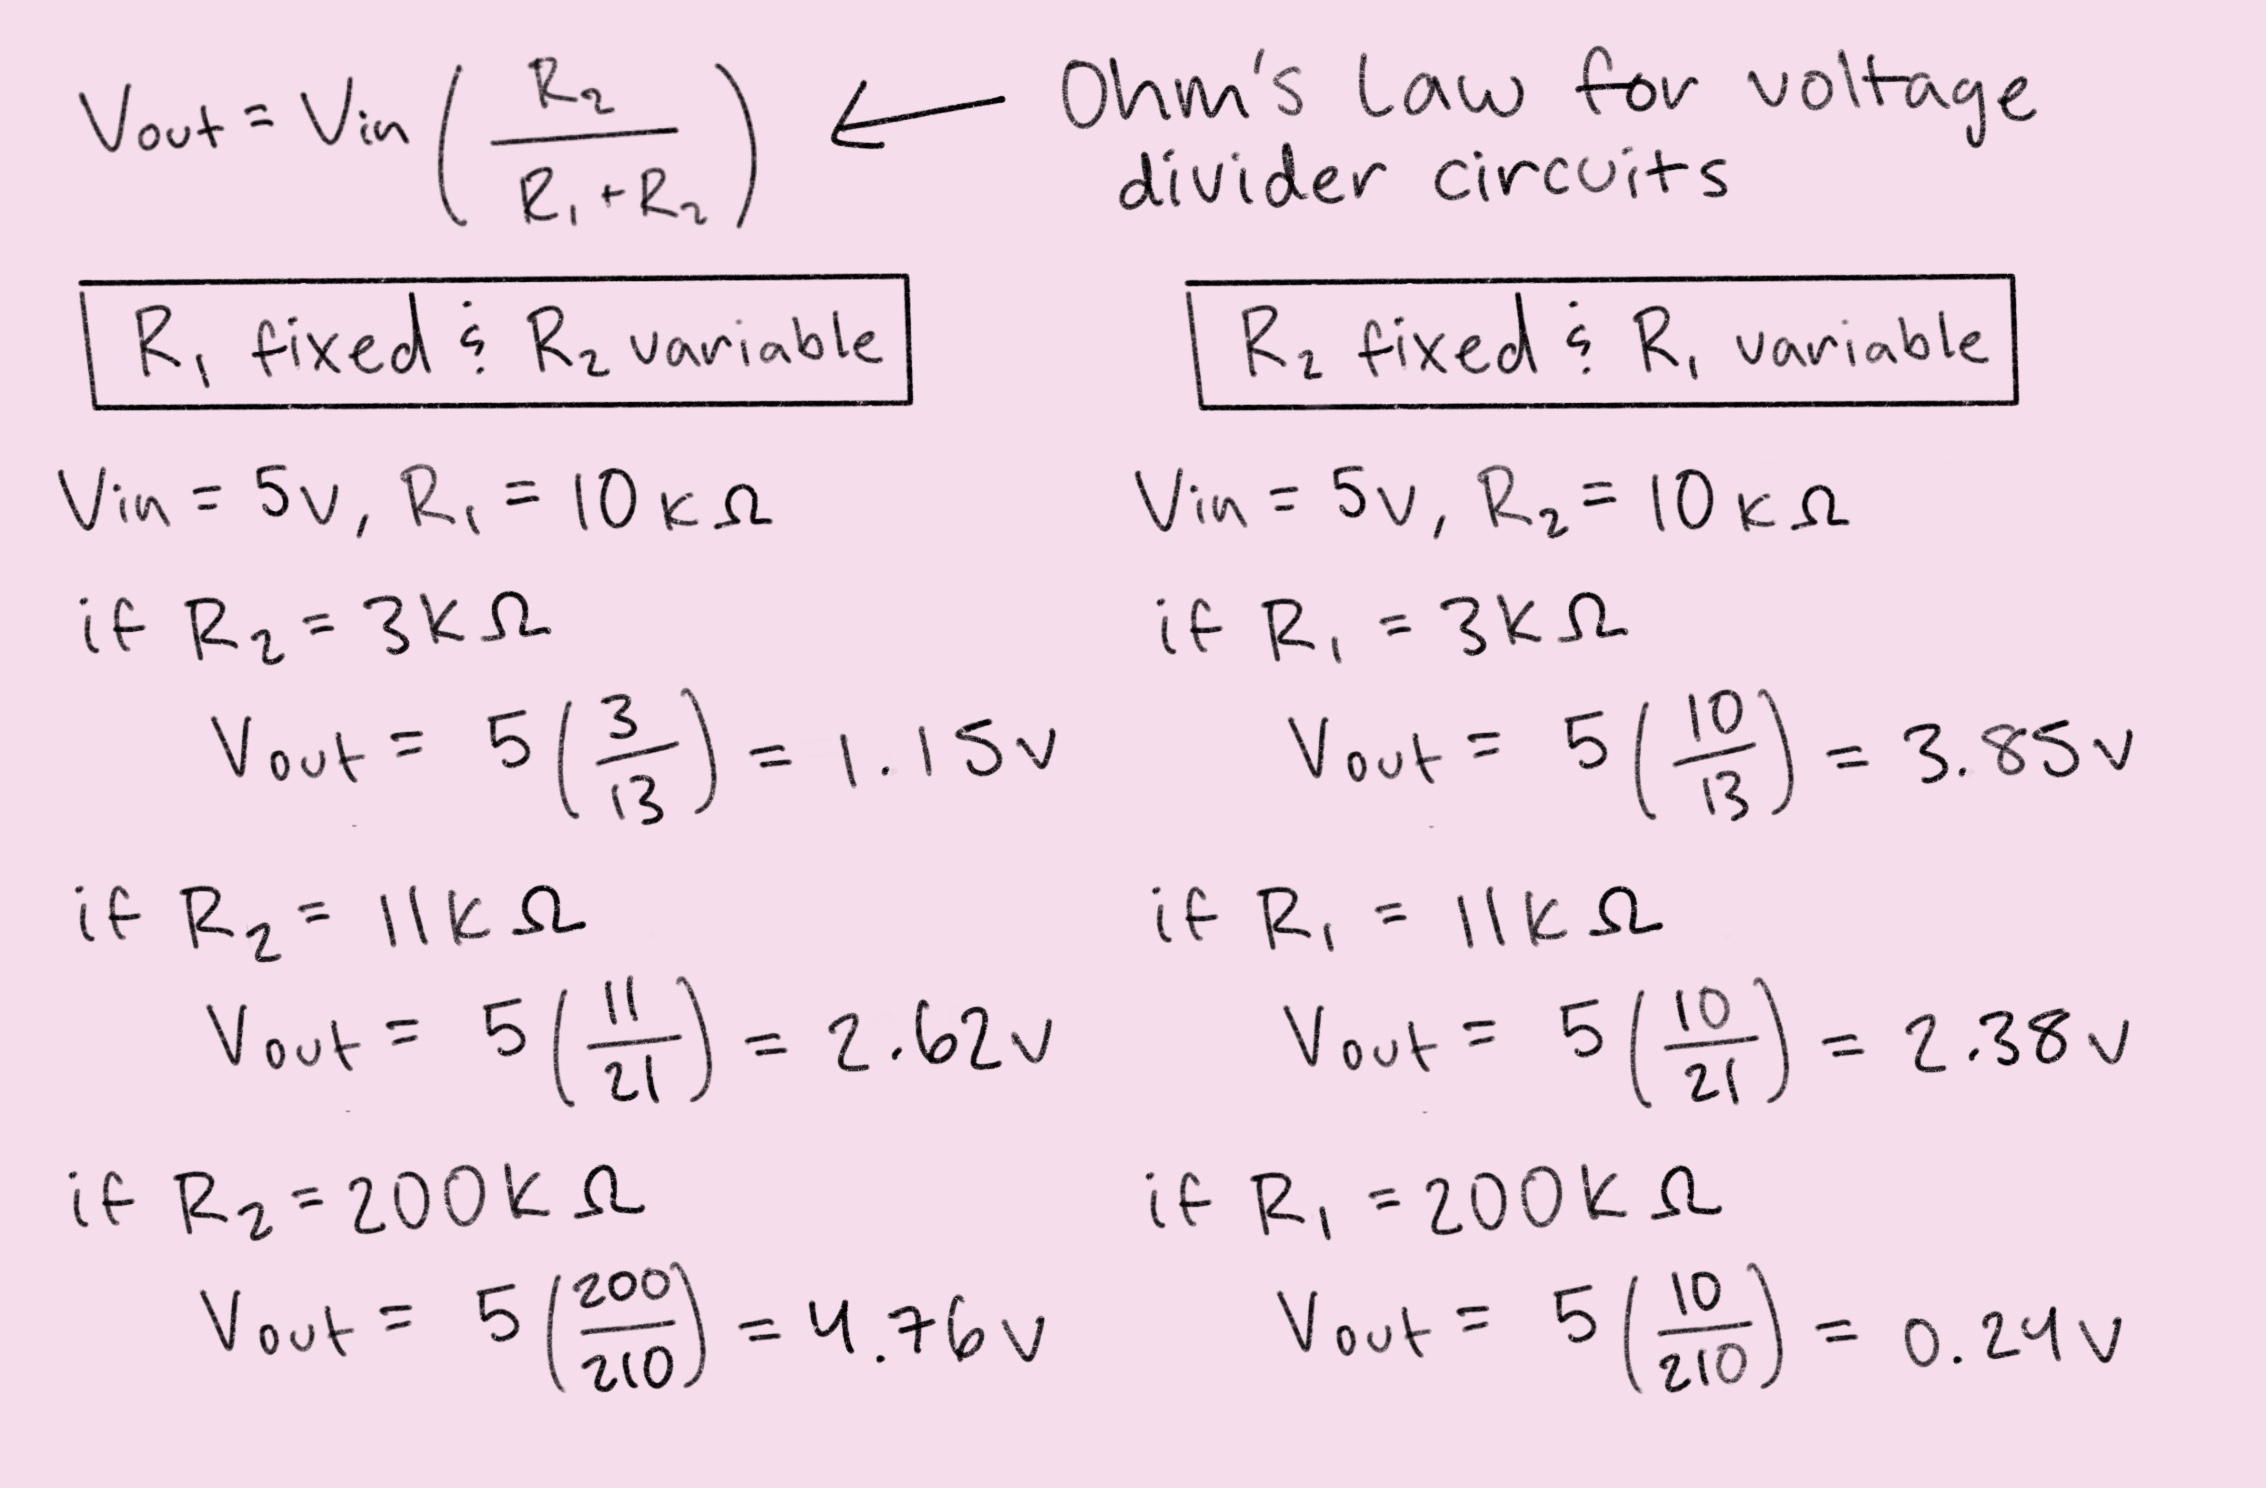 Vout = Vin (R₂ / (R₁ + R₂)) ← Ohm's Law for voltage
divider circuits
R₁ fixed & R₂ variable
Vin = 5v, R₁ = 10 kΩ
if R₂ = 3kΩ
Vout = 5(3/13) = 1.15v
if R₂ = 11kΩ
Vout = 5(11/21) = 2.62v
if R₂ = 200kΩ
Vout = 5(200/210) = 4.76v
R₂ fixed & R₁ variable
Vin = 5v, R₂ = 10 kΩ
if R₁ = 3kΩ
Vout = 5(10/13) = 3.85v
if R₁ = 11kΩ
Vout = 5(10/21) = 2.38v
if R₁ = 200kΩ
Vout = 5(10/210) = 0.24v